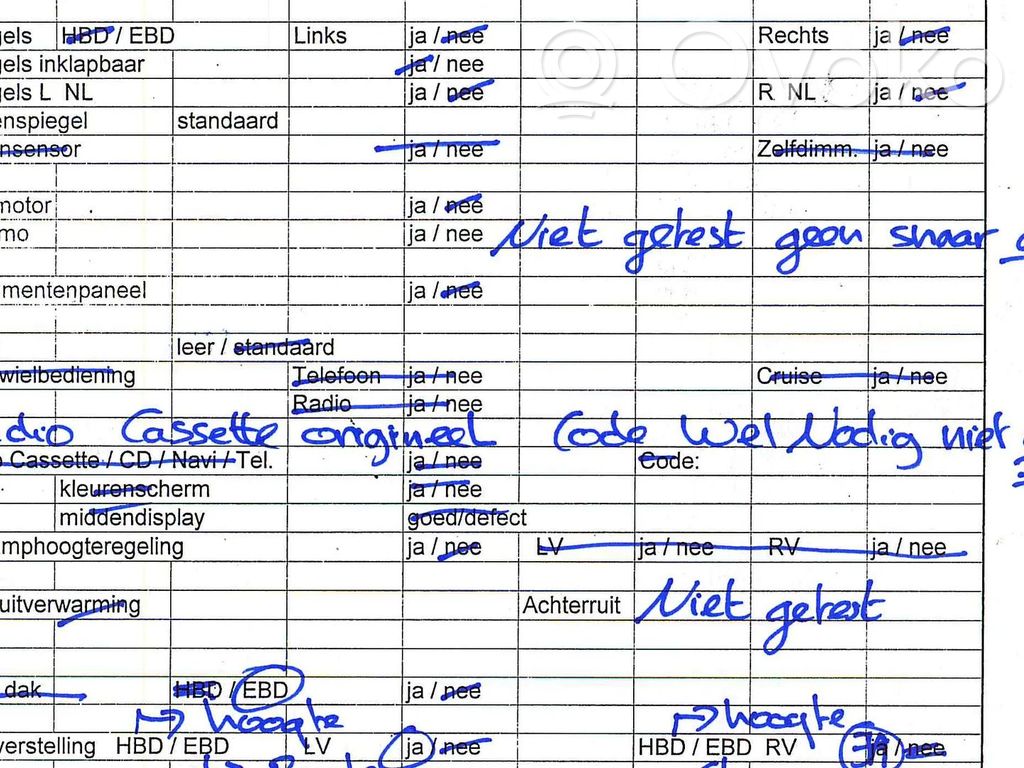 gels HBD / EBD Links ja / nee Rechts ja / nee
gels inklapbaar ja / nee
gels L NL ja / nee R NL ja / nee
enspiegel standaard
nsensor ja / nee Zelfdimm. ja / nee
motor ja / nee
mo ja / nee Niet getest geen snaar
mentenpaneel ja / nee
leer / standaard
wielbediening Telefoon ja / nee Cruise ja / nee
Radio ja / nee
dio Cassette origineel Code Wel Nodig niet
Cassette / CD / Navi / Tel. ja / nee Code:
kleurenscherm ja / nee
middendisplay goed/defect
mphoogteregeling ja / nee LV ja / nee RV ja / nee
uitverwarming Achterruit Niet getest
dak HBD / EBD ja / nee
hoogte hoogte
verstelling HBD / EBD LV ja / nee HBD / EBD RV ja / nee
Ovoko